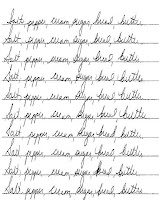 Salt, pepper, cream, sugar, bread, butter
Salt, pepper, cream, sugar, bread, butter
Salt, pepper, cream, sugar, bread, butter
Salt, pepper, cream, sugar, bread, butter
Salt, pepper, cream, sugar, bread, butter
Salt, pepper, cream, sugar, bread, butter
Salt, pepper, cream, sugar, bread, butter
Salt, pepper, cream, sugar, bread, butter
Salt, pepper, cream, sugar, bread, butter
Salt, pepper, cream, sugar, bread, butter